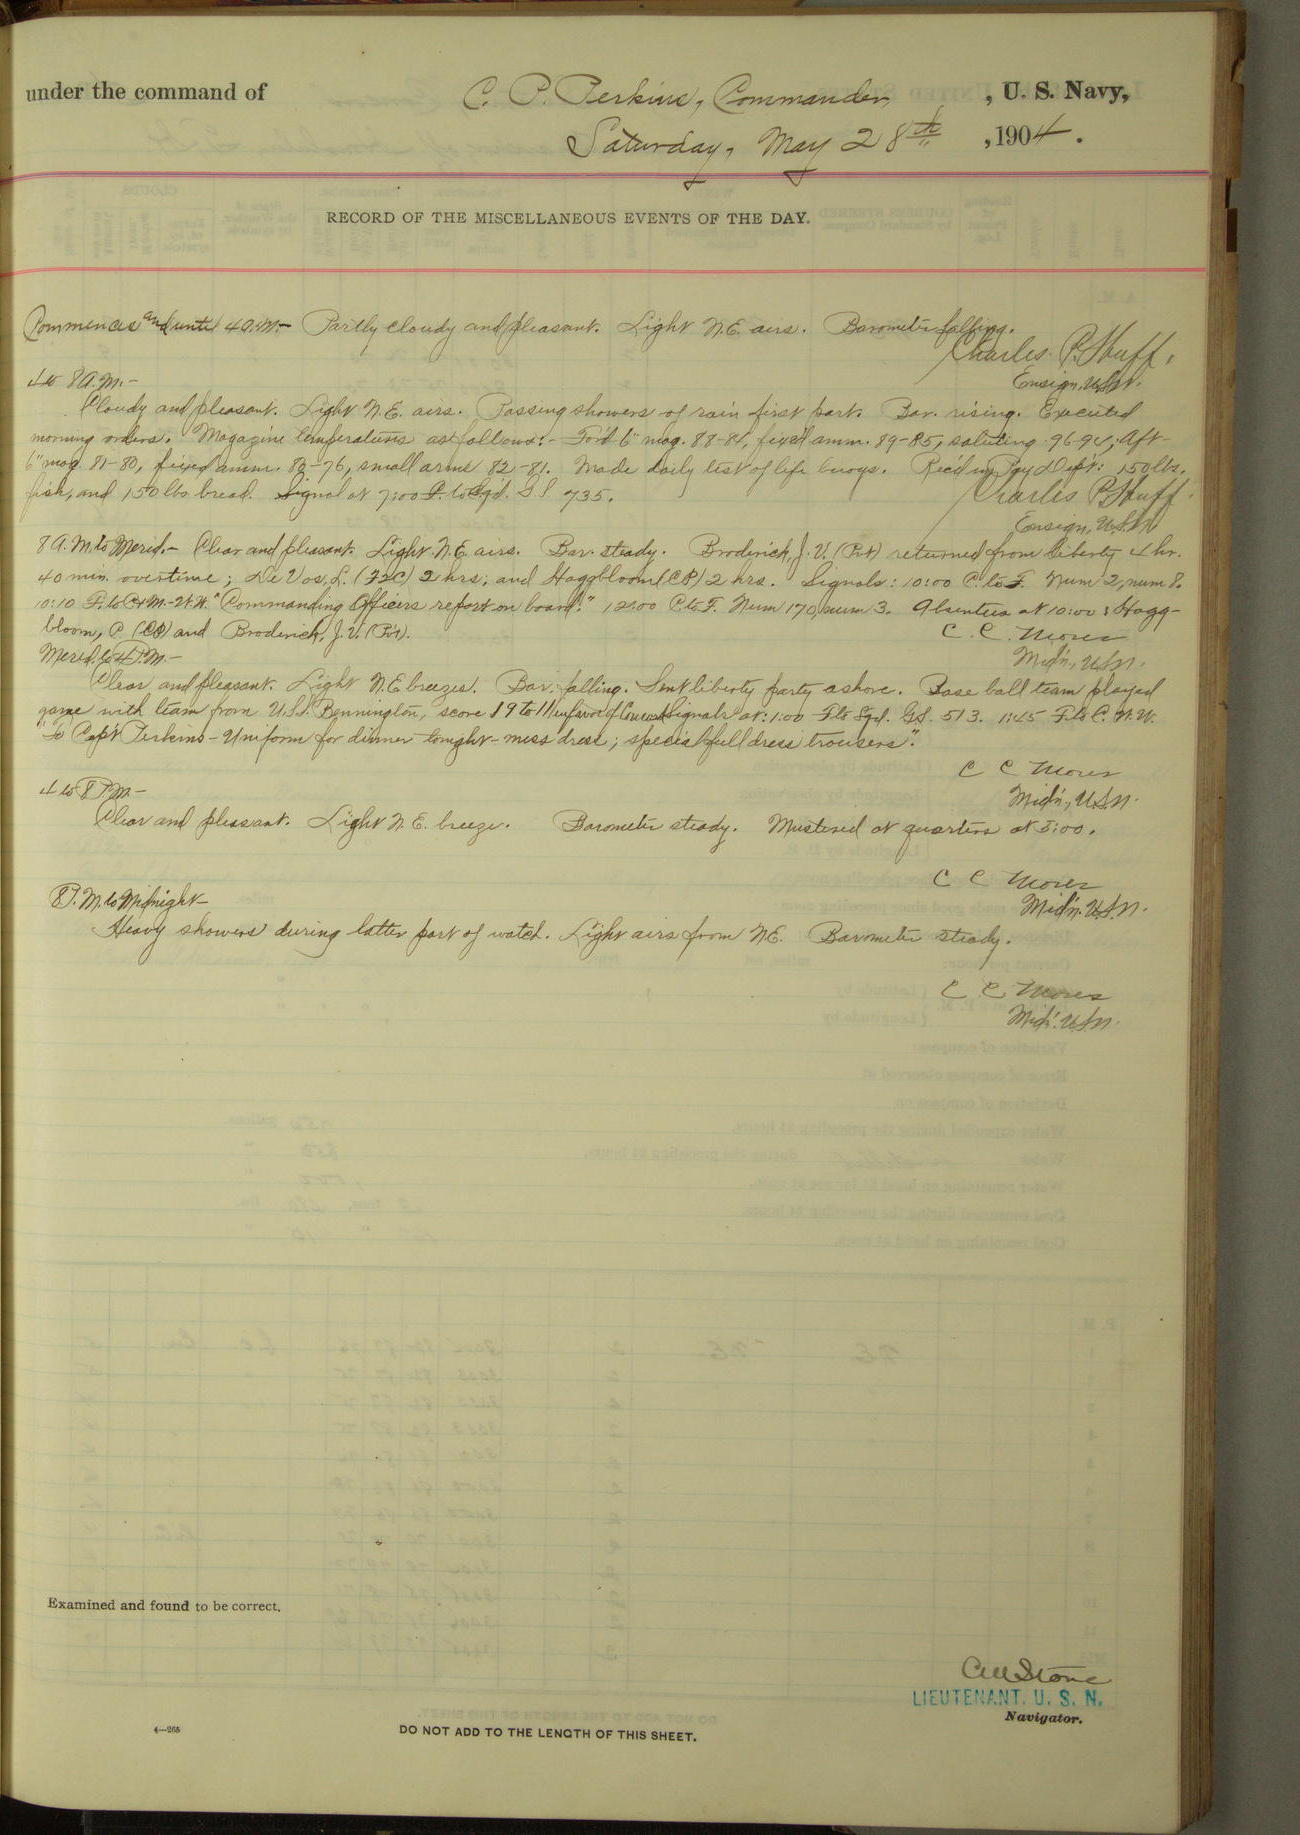 under the command of C. P. Perkins, Commander, U. S. Navy,
Saturday, May 28th, 1904.
RECORD OF THE MISCELLANEOUS EVENTS OF THE DAY.
Commences and until 4 A.M.- Partly cloudy and pleasant. Light N.E. airs. Barometer falling.
Charles P. Huff,
4 to 8 A.M.-
Ensign, U.S.N.
Cloudy and pleasant. Light N.E. airs. Passing showers of rain first part. Bar. rising. Executed
morning orders. Magazine temperatures as follows:- For'd 6" mag. 88-84, fixed amm. 89-85, saluting 96-94; Aft-
6" mag. 81-80, fixed amm. 82-76, small arms 82-81. Made daily test of life buoys. Rec'd in Pay Dep't: 150 lbs.
fish, and 150 lbs bread. Signal at 7:00 F. to Sq'd. G.S. 735.
Charles P. Huff
Ensign, U.S.N.
8 A.M. to Merid.- Clear and pleasant. Light N.E. airs. Bar. steady. Broderick, J. V. (Pvt) returned from liberty 4 hr.
40 min. overtime; De Vos, L. (F2C) 2 hrs; and Haggbloom (CP) 2 hrs. Signals: 10:00 C. to F. Num 2, num 8.
10:10 F. to C & M.-W.W. "Commanding Officers report on board." 12:00 C. to F. Num 170, num 3. Absentees at 10:00: Hagg-
bloom, P. (CP) and Broderick, J. V. (Pvt).
C. C. Moses
Merid. to 4 P.M.-
Mid'n, U.S.N.
Clear and pleasant. Light N.E. breezes. Bar. falling. Sent liberty party ashore. Base ball team played
game with team from U.S.S. Bennington, score 19 to 11 in favor of Concord. Signals at: 1:00 F. to Sqd. G.S. 513. 1:45 F. to C. W.W.
"To Capt Perkins - Uniform for dinner tonight - mess dress; special full dress trousers".
C C Moses
4 to 8 P.M.-
Mid'n, U.S.N.
Clear and pleasant. Light N.E. breeze. Barometer steady. Mustered at quarters at 5:00.
C C Moses
8 P.M. to Midnight-
Mid'n. U.S.N.
Heavy showers during latter part of watch. Light airs from N.E. Barometer steady.
C C Moses
Mid'n. U.S.N.
Examined and found to be correct.
CM Stone
LIEUTENANT. U. S. N.
Navigator.
4—265
DO NOT ADD TO THE LENGTH OF THIS SHEET.